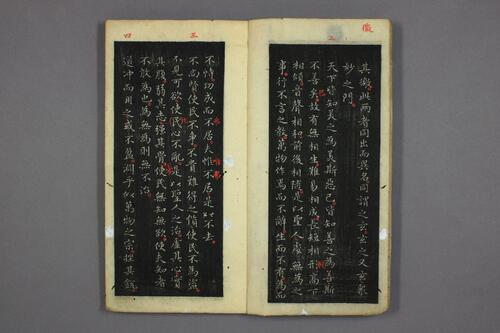 徼
二
其徼此兩者同出而異名同謂之玄玄之又玄衆
妙之門
天下皆知美之為美斯惡已皆知善之為善斯
不善矣故有無相生難易相成長短相形高下
相傾音聲相和前後相隨是以聖人處無為之
事行不言之教萬物作焉而不辭生而不有為而
三
四
不恃功成而不居夫惟不居是以不去
不尚賢使民不爭不貴難得之貨使民不為盜
不見可欲使民心不亂是以聖人之治虛其心實
其腹弱其志強其骨使民無知無欲使夫知者
不敢為也為無為則無不治
道沖而用之或不盈淵乎似萬物之宗挫其銳